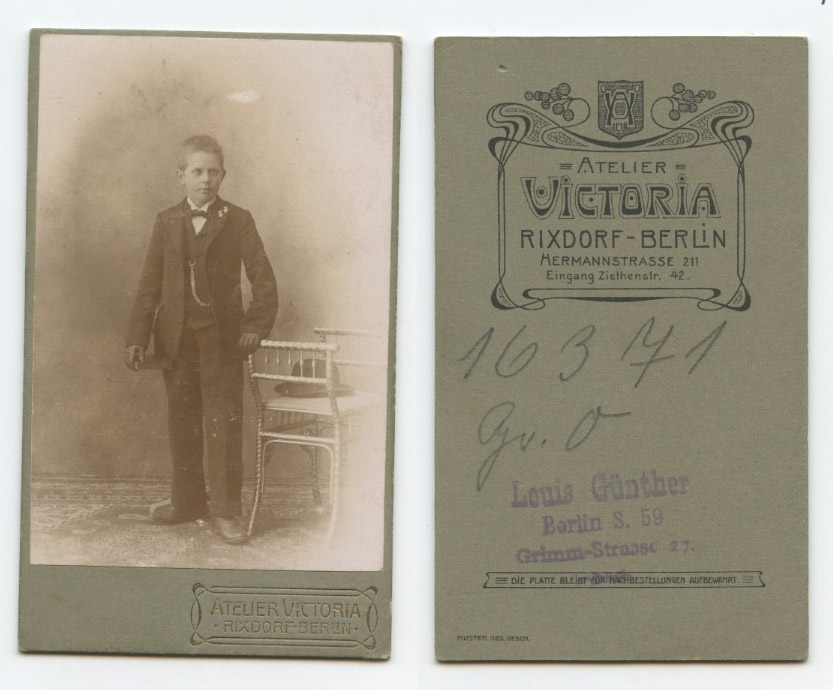 ATELIER VICTORIA
· RIXDORF-BERLIN ·
ATELIER
VICTORIA
RIXDORF-BERLIN
HERMANNSTRASSE 211
Eingang Ziethenstr. 42.
16371
Gv. O
Louis Günther
Berlin S. 59
Grimm-Strasse 27.
DIE PLATTE BLEIBT FÜR NACHBESTELLUNGEN AUFBEWAHRT.
MUSTER GES. GESCH.